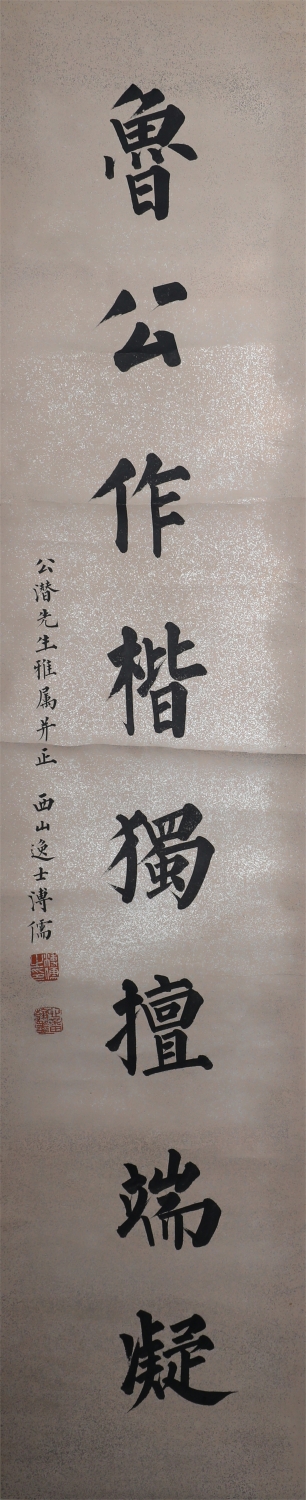 魯公作楷獨擅端凝
公潜先生雅属并正 西山逸士溥儒